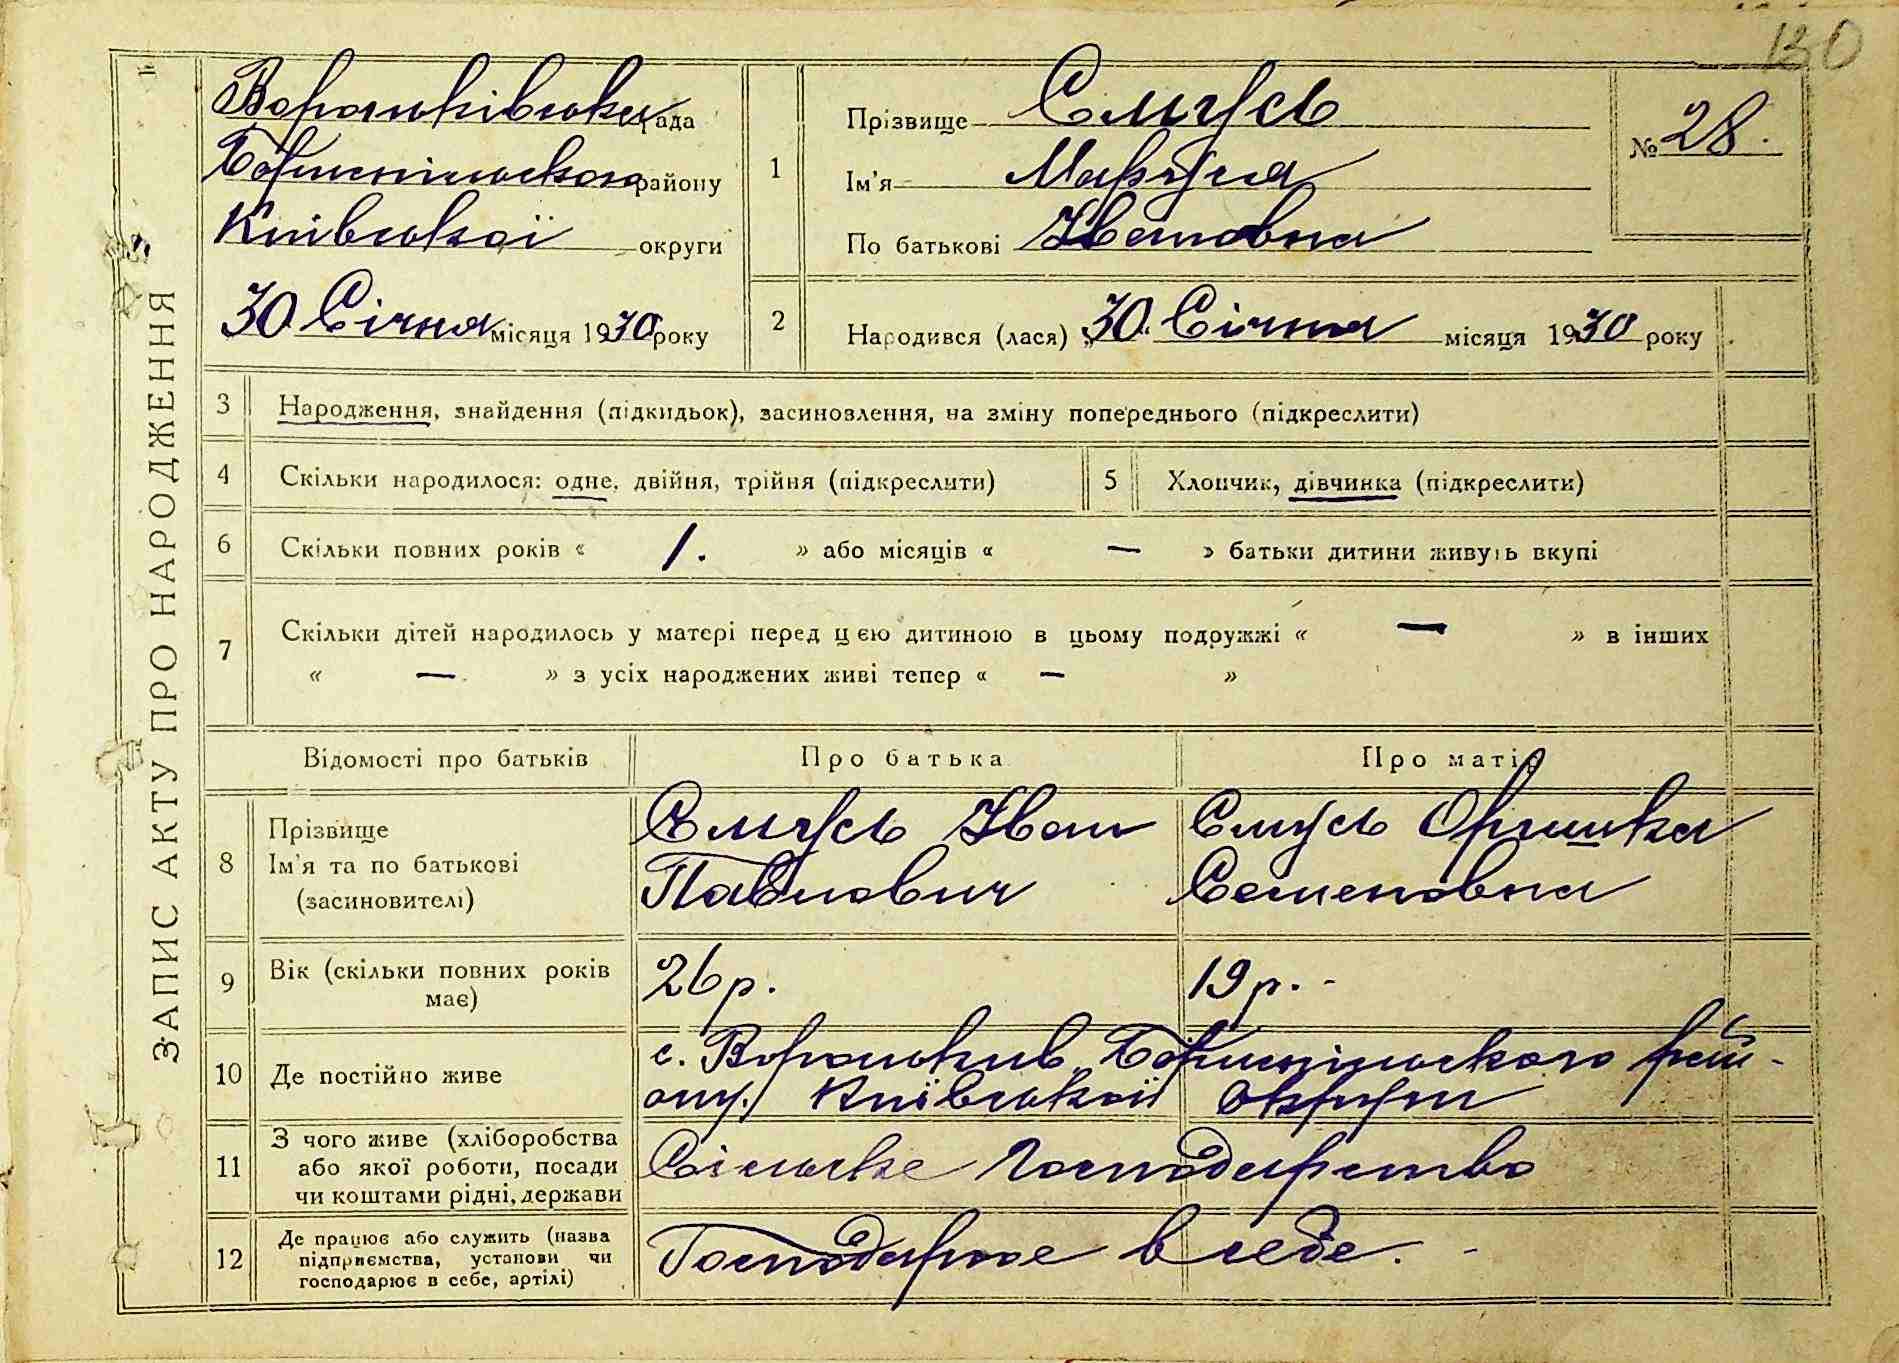 130
ЗАПИС АКТУ ПРО НАРОДЖЕННЯ
Вороньківська рада
Бориспільського району
Київської округи
30 Січня місяця 1930 року
1
Прізвище Смусь
Ім'я Маруся
По батькові Ивановна
№ 28.
2
Народився (лася) „30" Січня місяця 1930 року
3 Народження, знайдення (підкидьок), засиновлення, на зміну попереднього (підкреслити)
4 Скільки народилося: одне, двійня, трійня (підкреслити)
5 Хлопчик, дівчинка (підкреслити)
6 Скільки повних років « 1. » або місяців « — » батьки дитини живуть вкупі
7 Скільки дітей народилось у матері перед цією дитиною в цьому подружжі « — » в інших
« — » з усіх народжених живі тепер « — »
Відомості про батьків Про батька Про матір
8 Прізвище
Ім'я та по батькові
(засиновителі)
Смусь Иван
Павлович
Смусь Оришка
Семеновна
9 Вік (скільки повних років
має)
26 р. 19 р. -
10 Де постійно живе
с. Вороньків Бориспільского рай-
ону. Київської округи
11 З чого живе (хліборобства
або якої роботи, посади
чи коштами рідні, держави
Сільське господарство
12 Де працює або служить (назва
підприємства, установи чи
господарює в себе, артілі)
Господарює в себе. -